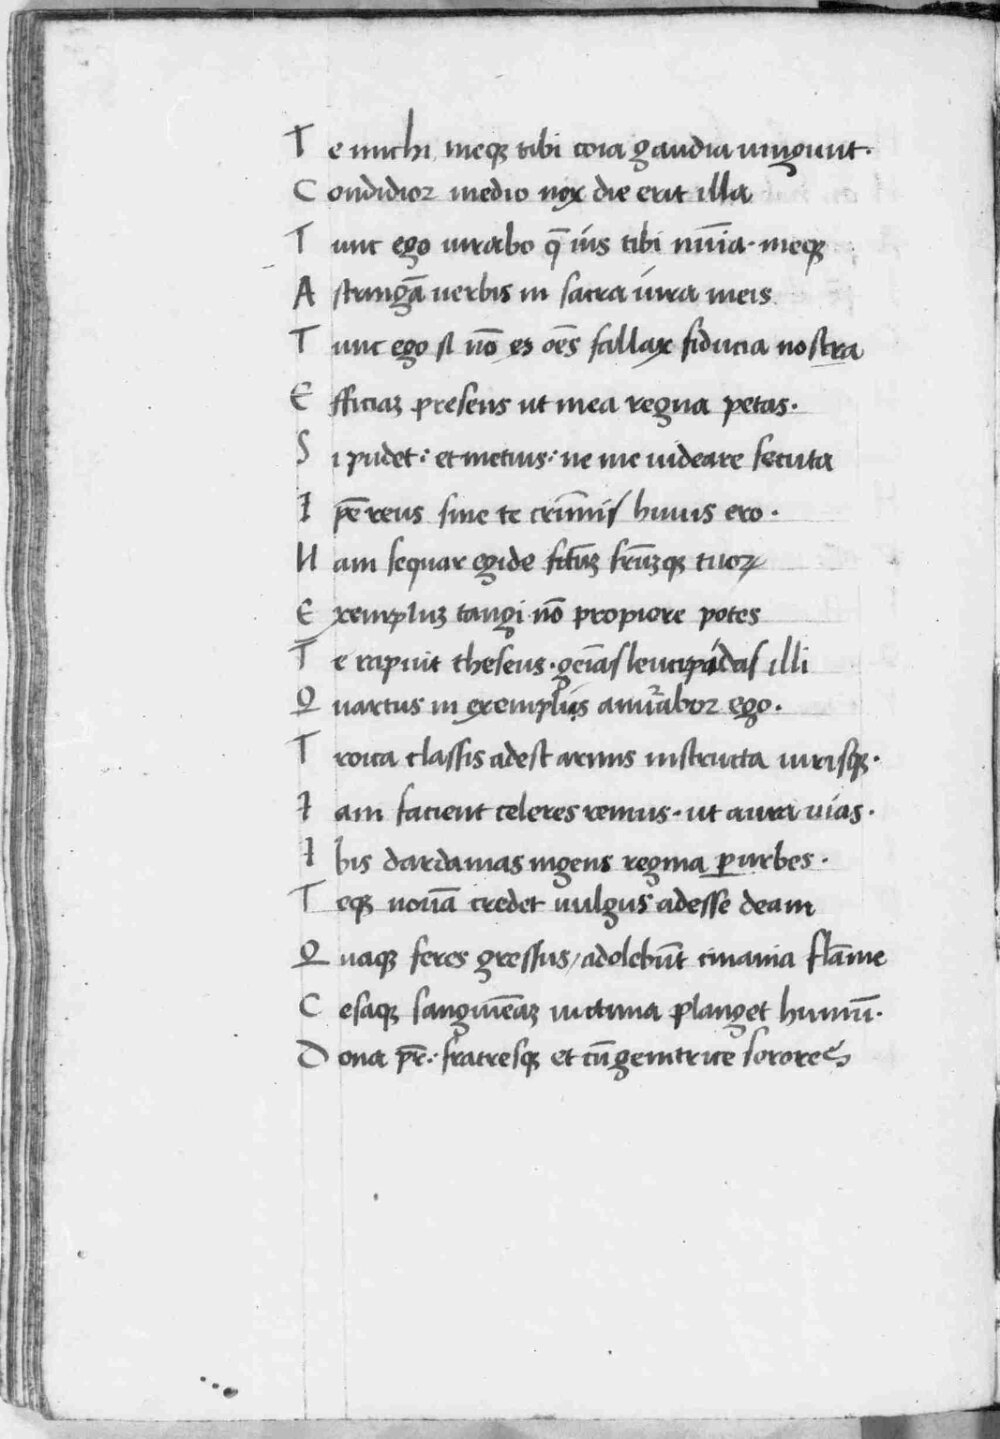 Te michi, meqꝫ tibi coia gaudia iungunt.
Condidior medio nox die erit illa
Tunc ego iurabo q̄ uis tibi nuīa. meqꝫ
Astringā uerbis in sacra iura meis
Tunc ego si nō es oēs fallax fiducia nostra
Efficiaꝫ presens ut mea regna petas.
Si pudet: et metuis: ne me uideare secuta
Ipe reus sine te crimīs huius ero.
Nam sequar egide fctūꝫ frūꝫqꝫ tuoꝝ
Exempluꝫ tangi nō propiore potes
Te rapuit theseus. geīas leucipidas illi
Quartus in exemplis anūrabor ego.
Troica classis adest armis instructa uirisqꝫ.
Iam facient celeres remus. ut aura uias.
Ibis dardanias ingens regina ꝑ urbes.
Teqꝫ nouā credet uulgus adesse deam
Quaqꝫ feres gressus / adolebūt cinania flāme
Cesaqꝫ sanguīeaꝫ uictima planget humū.
Dona pr̄. fratresqꝫ et cū genitrice sorores